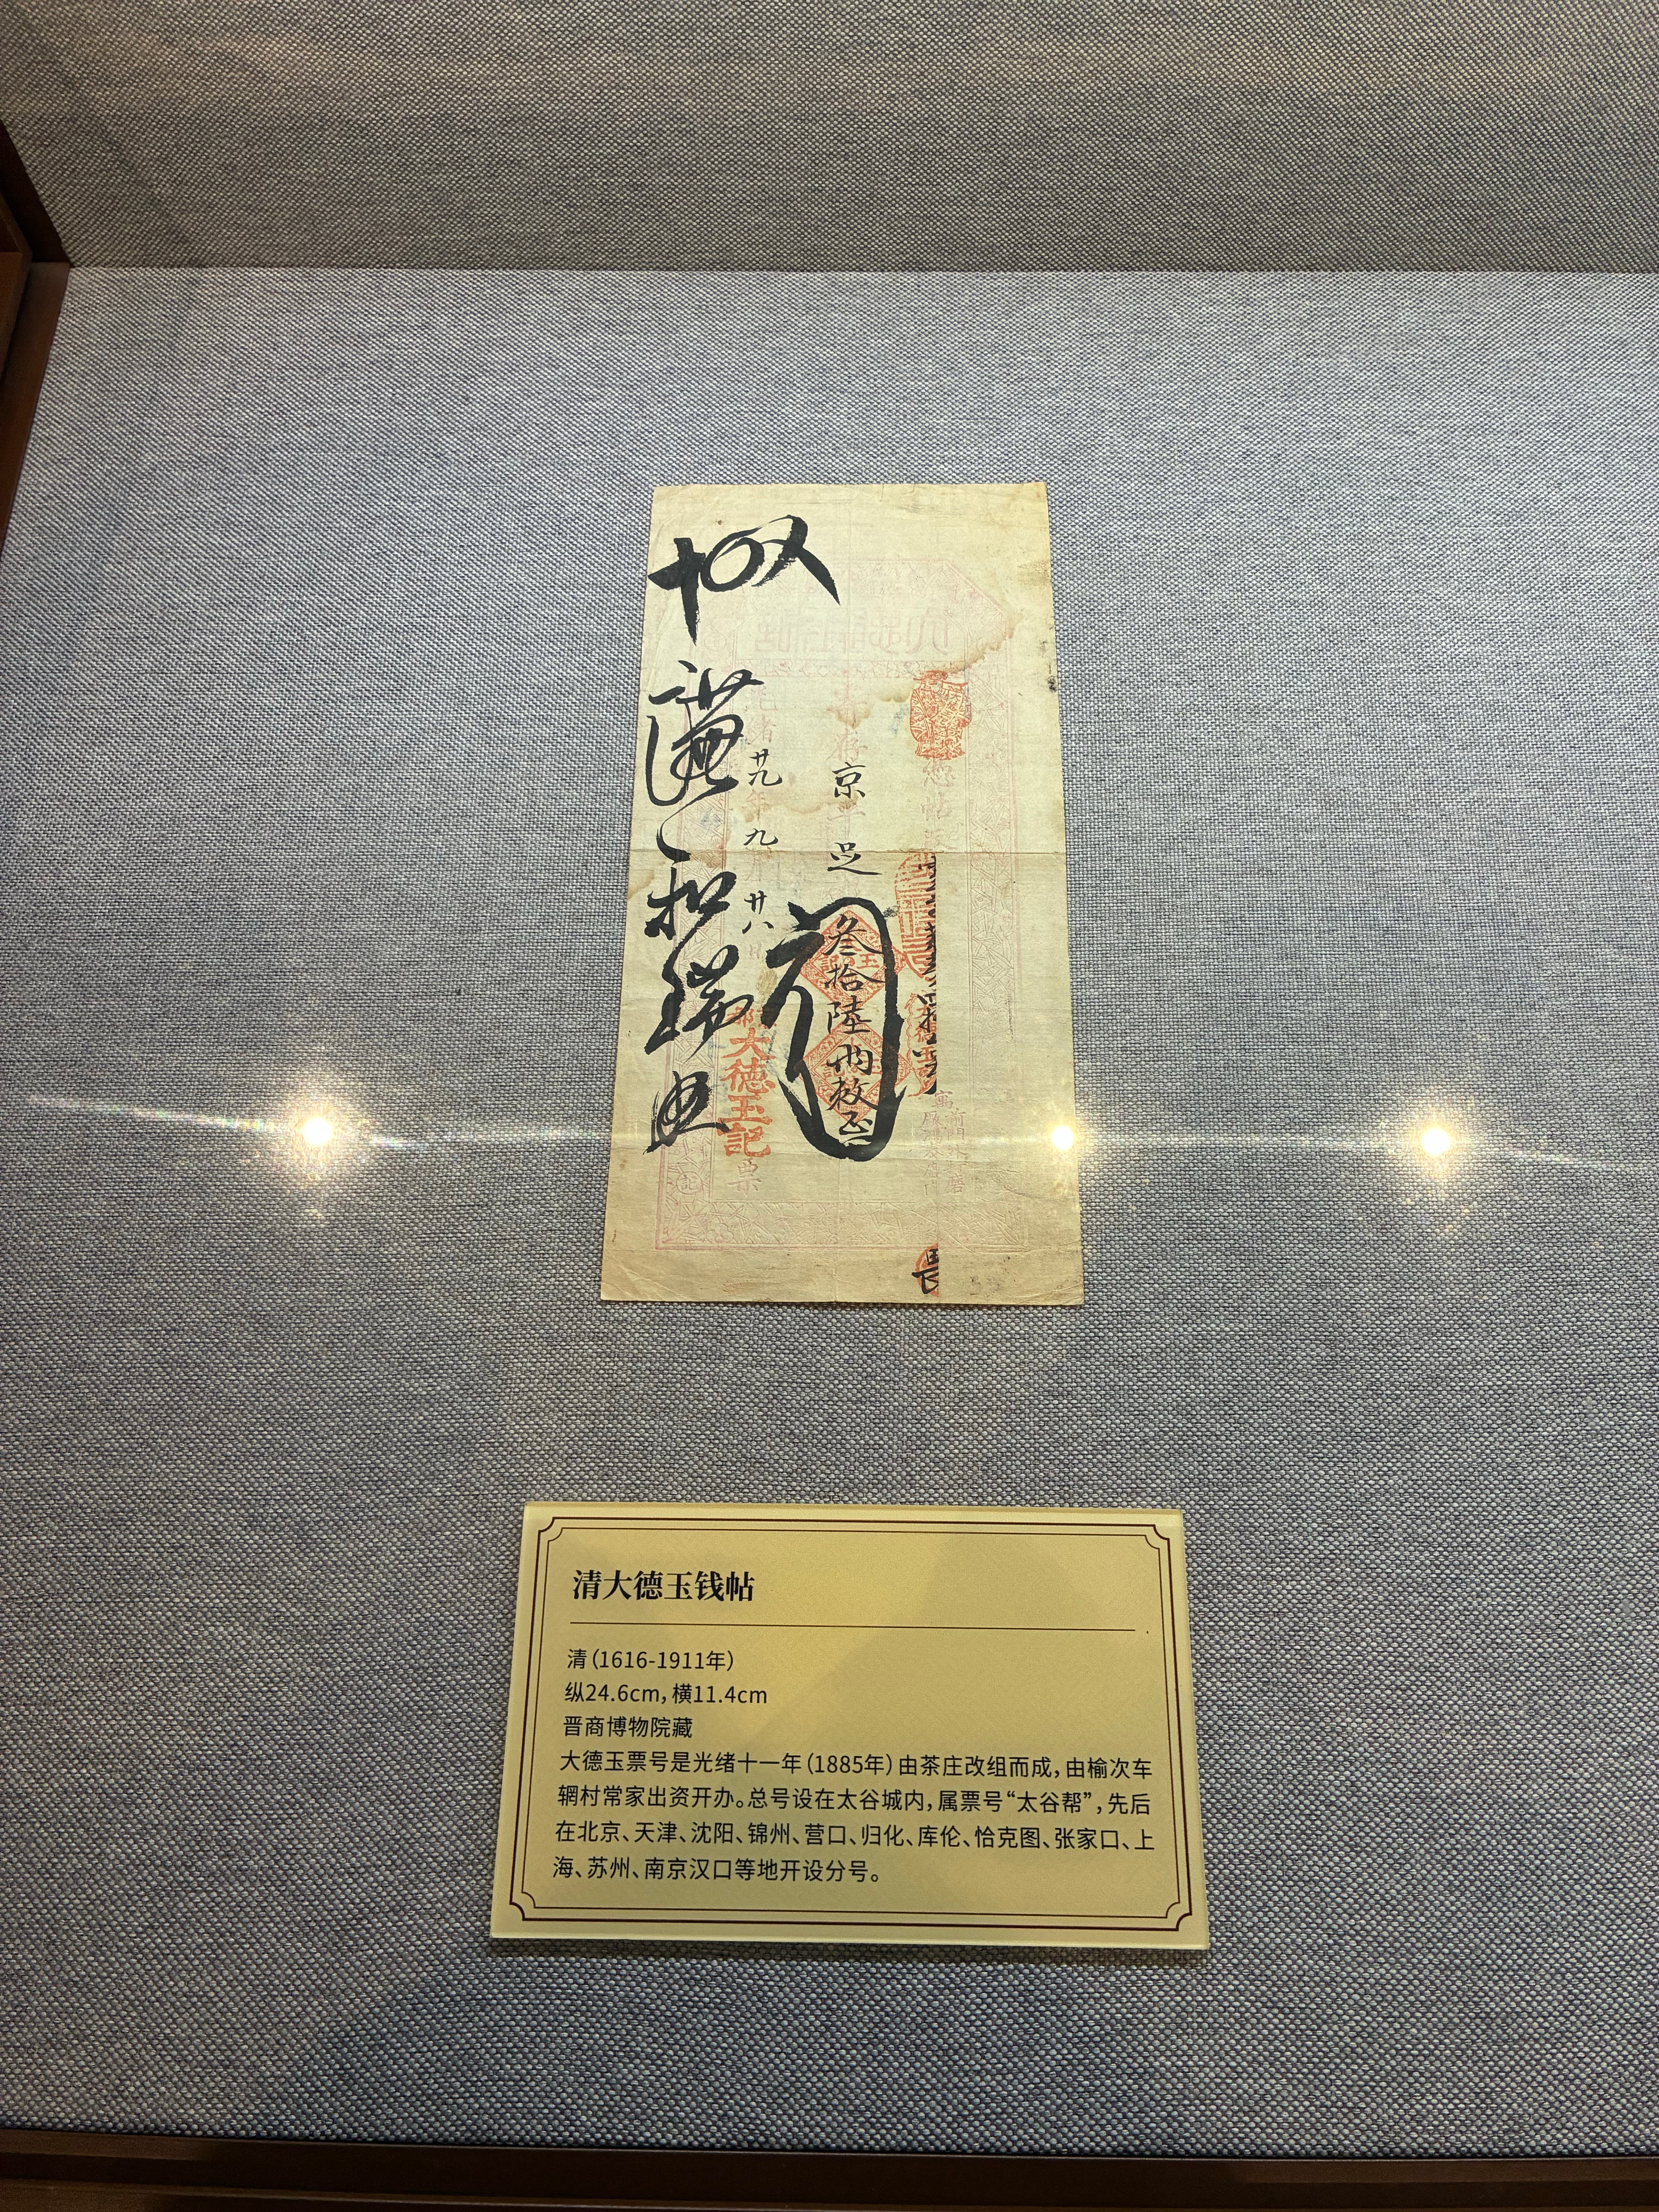 憑帖
京平足
叁拾陸兩整
光緒廿九年九月廿八日
大德玉記
票
謙和瑞
清大德玉钱帖
清（1616-1911年）
纵24.6cm，横11.4cm
晋商博物院藏
大德玉票号是光绪十一年（1885年）由茶庄改组而成，由榆次车
辋村常家出资开办。总号设在太谷城内，属票号“太谷帮”，先后
在北京、天津、沈阳、锦州、营口、归化、库伦、恰克图、张家口、上
海、苏州、南京汉口等地开设分号。